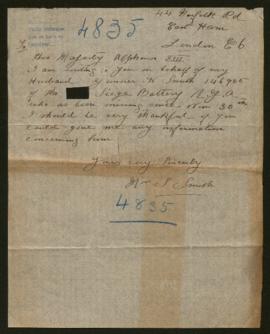 4835
44 Norfolk Rd
East Ham
London E6
His Majesty Alphonso XIII.
I am writing to you in behalf of my
Husband Gunner S. Smith 146985
of the Siege Battery R.G.A
who as been missing since Nov 30th
I should be very thankful if you
could give me any information
concerning him
Yours Very Sincerely
Mrs S Smith
4835